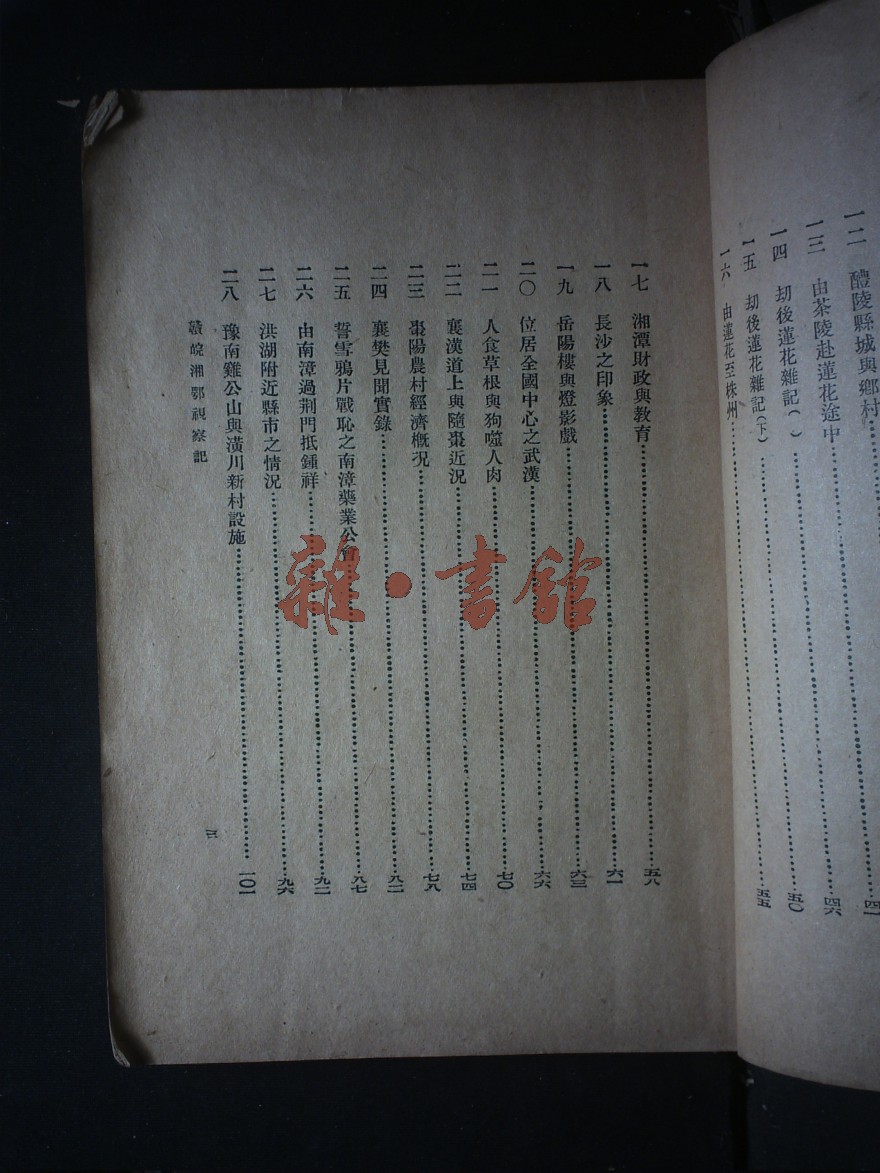 一二　醴陵縣城與鄉村
四二
一三　由茶陵赴蓮花途中
四六
一四　刼後蓮花雜記(　)
五〇
一五　刼後蓮花雜記(下)
五五
一六　由蓮花至株州
一七　湘潭財政與教育
五八
一八　長沙之印象
六一
一九　岳陽樓與燈影戲
六三
二〇　位居全國中心之武漢
六六
二一　人食草根與狗噬人肉
七〇
二二　襄漢道上與隨棗近況
七四
二三　棗陽農村經濟概况
七八
二四　襄樊見聞實錄
八二
二五　誓雪鴉片戰恥之南漳藥業公會
八七
二六　由南漳過荆門抵鍾祥
九二
二七　洪湖附近縣市之情況
九六
二八　豫南雞公山與潢川新村設施
一〇一
贛皖湘鄂視察記
雜·書館